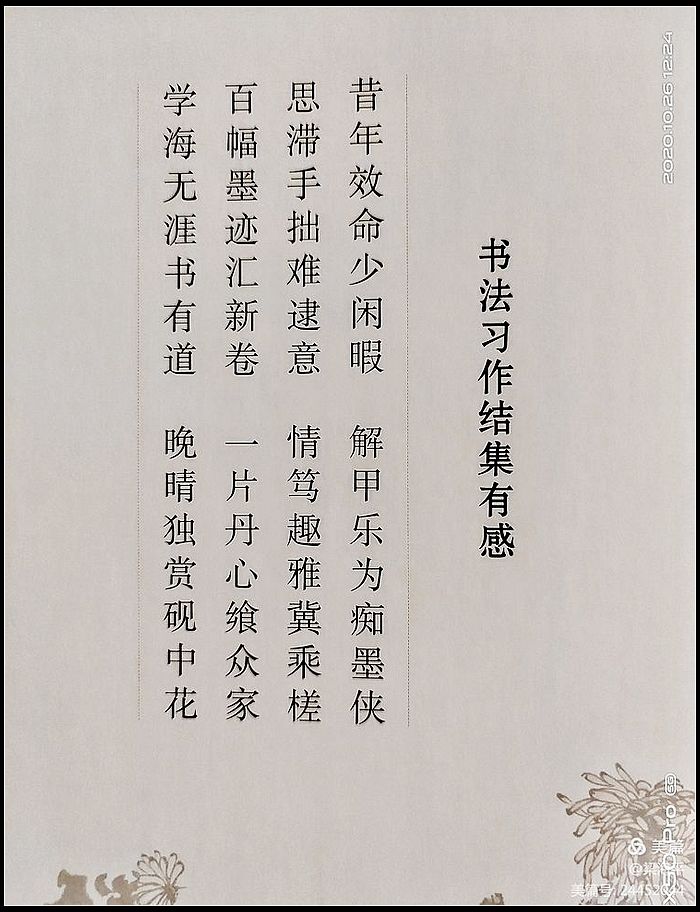 书法习作结集有感
昔年效命少闲暇 解甲乐为痴墨侠
思滞手拙难逮意 情笃趣雅冀乘槎
百幅墨迹汇新卷 一片丹心飨众家
学海无涯书有道 晚晴独赏砚中花
2020.10.26 12:24
美篇